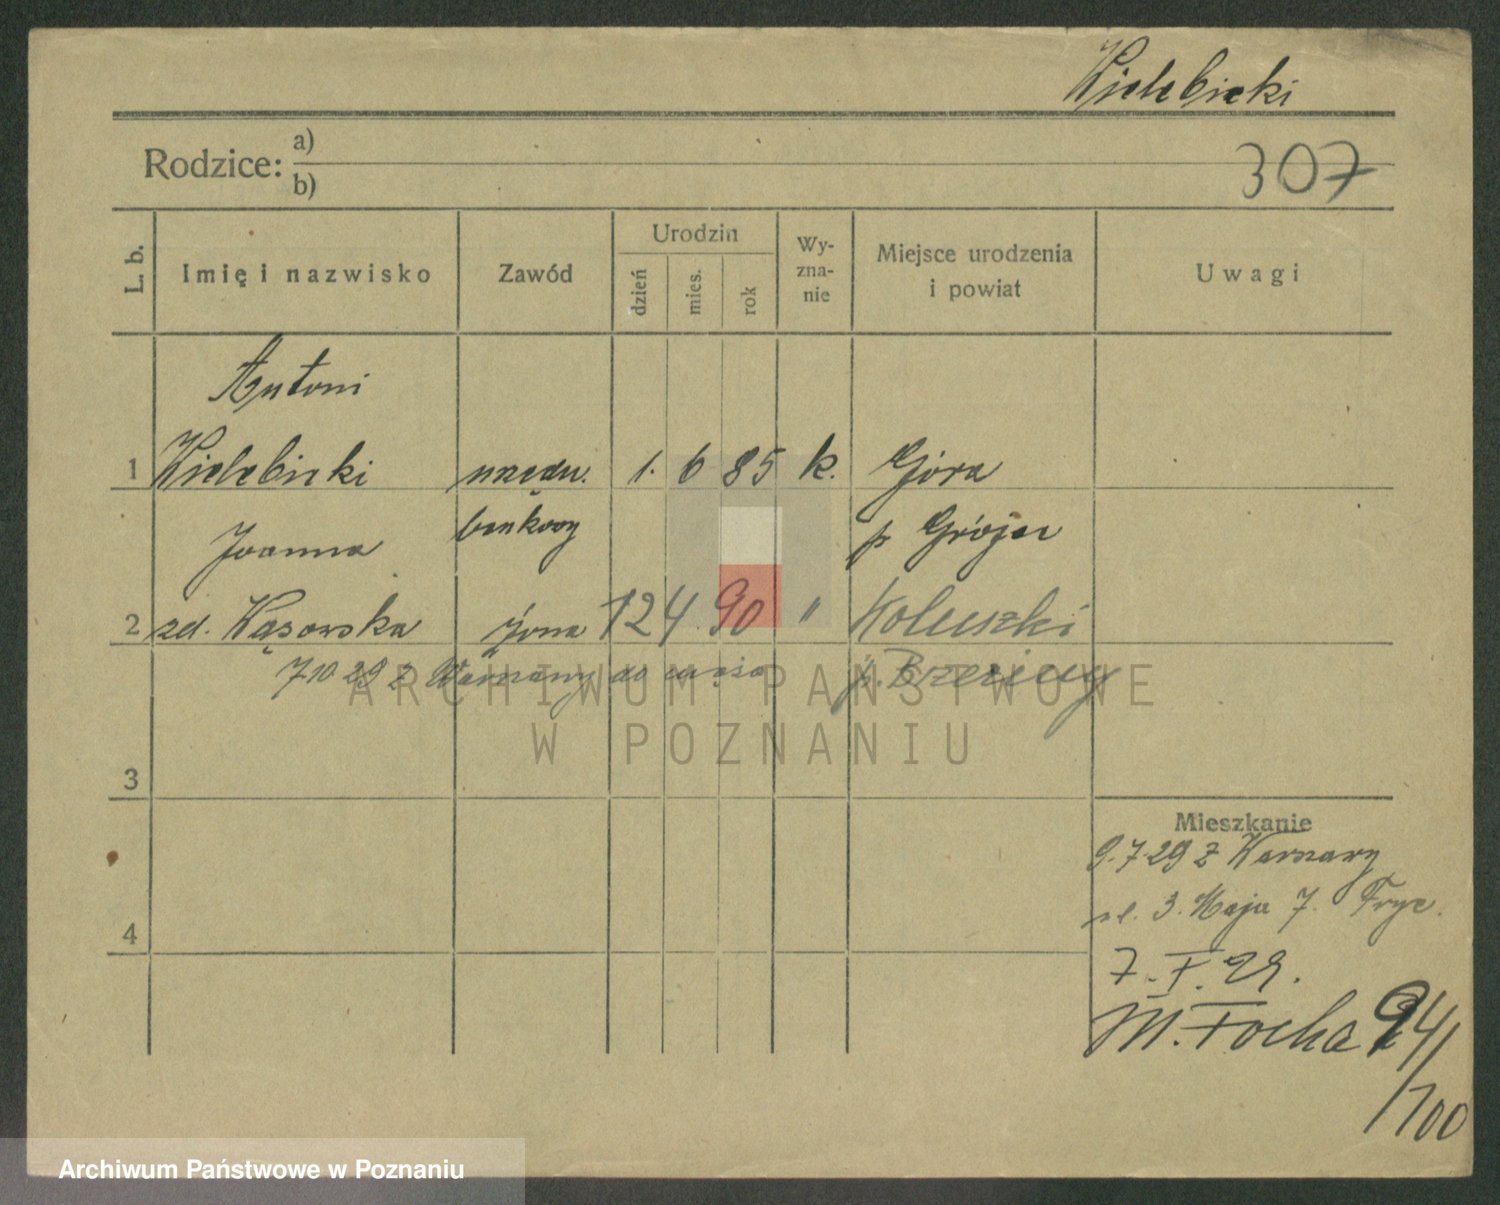 Kielbicki
Rodzice: a)
b)
307
L. b.
Imię i nazwisko
Zawód
Urodzin
dzień
mies.
rok
Wy-
zna-
nie
Miejsce urodzenia
i powiat
Uwagi
Antoni
1 Kielbicki urzędn. 1. 6 85 k. Góra
bankowy p Grójec
Joanna
2 zd. Kąsowska żona 12 4 90 " Koluszki
7 10 29 z Warszawy do męża p. Brzeziny
ARCHIWUM PAŃSTWOWE
W POZNANIU
3
Mieszkanie
9.7.29 z Warszawy
ul. 3. Maja 7. Fryc.
4
7. X. 29.
M. Focha 94/
/100
Archiwum Państwowe w Poznaniu